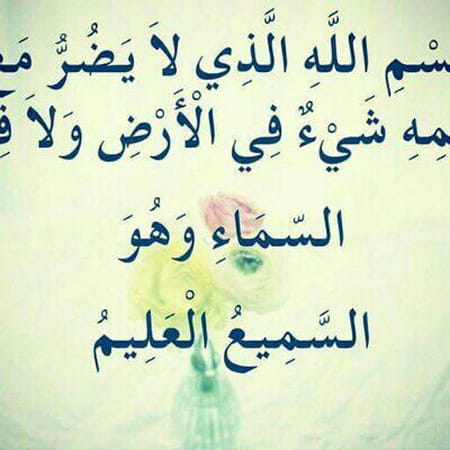 سْمِ اللَّهِ الَّذِي لاَ يَضُرُّ مَع
مِهِ شَيْءٌ فِي الْأَرْضِ وَلاَ فِ
السّمَاءِ وَهُوَ
السَّمِيعُ الْعَلِيمُ